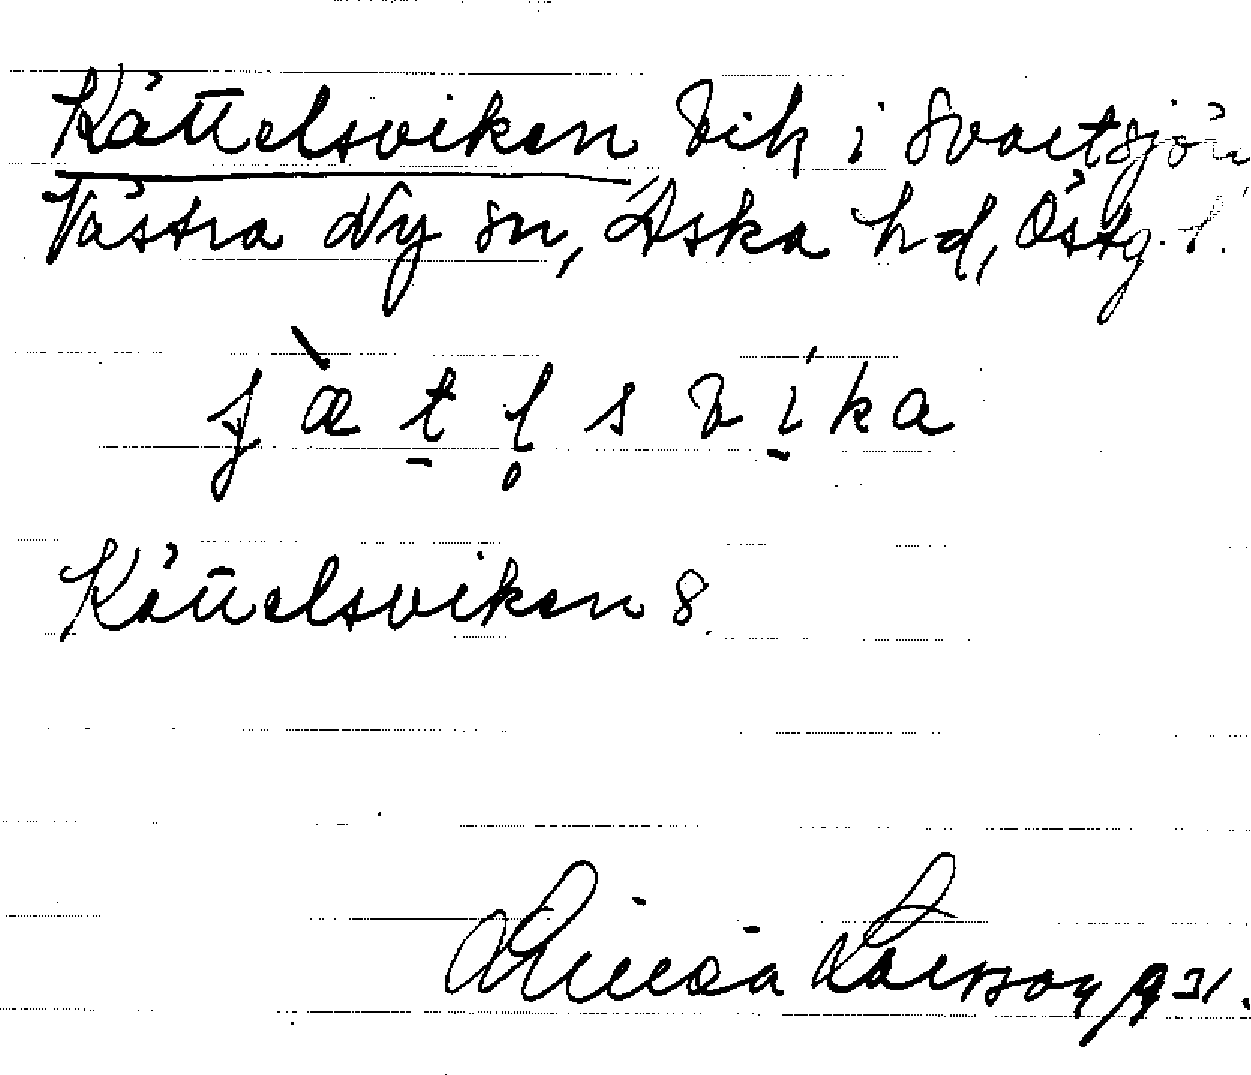 Kättelsviken Vik i Svartsjön
Västra Ny sn, Aska hd, Östg. l.
jæt̠l̥svi̠ka
Kättelsviken S.
Linnéa Larsson 1931.